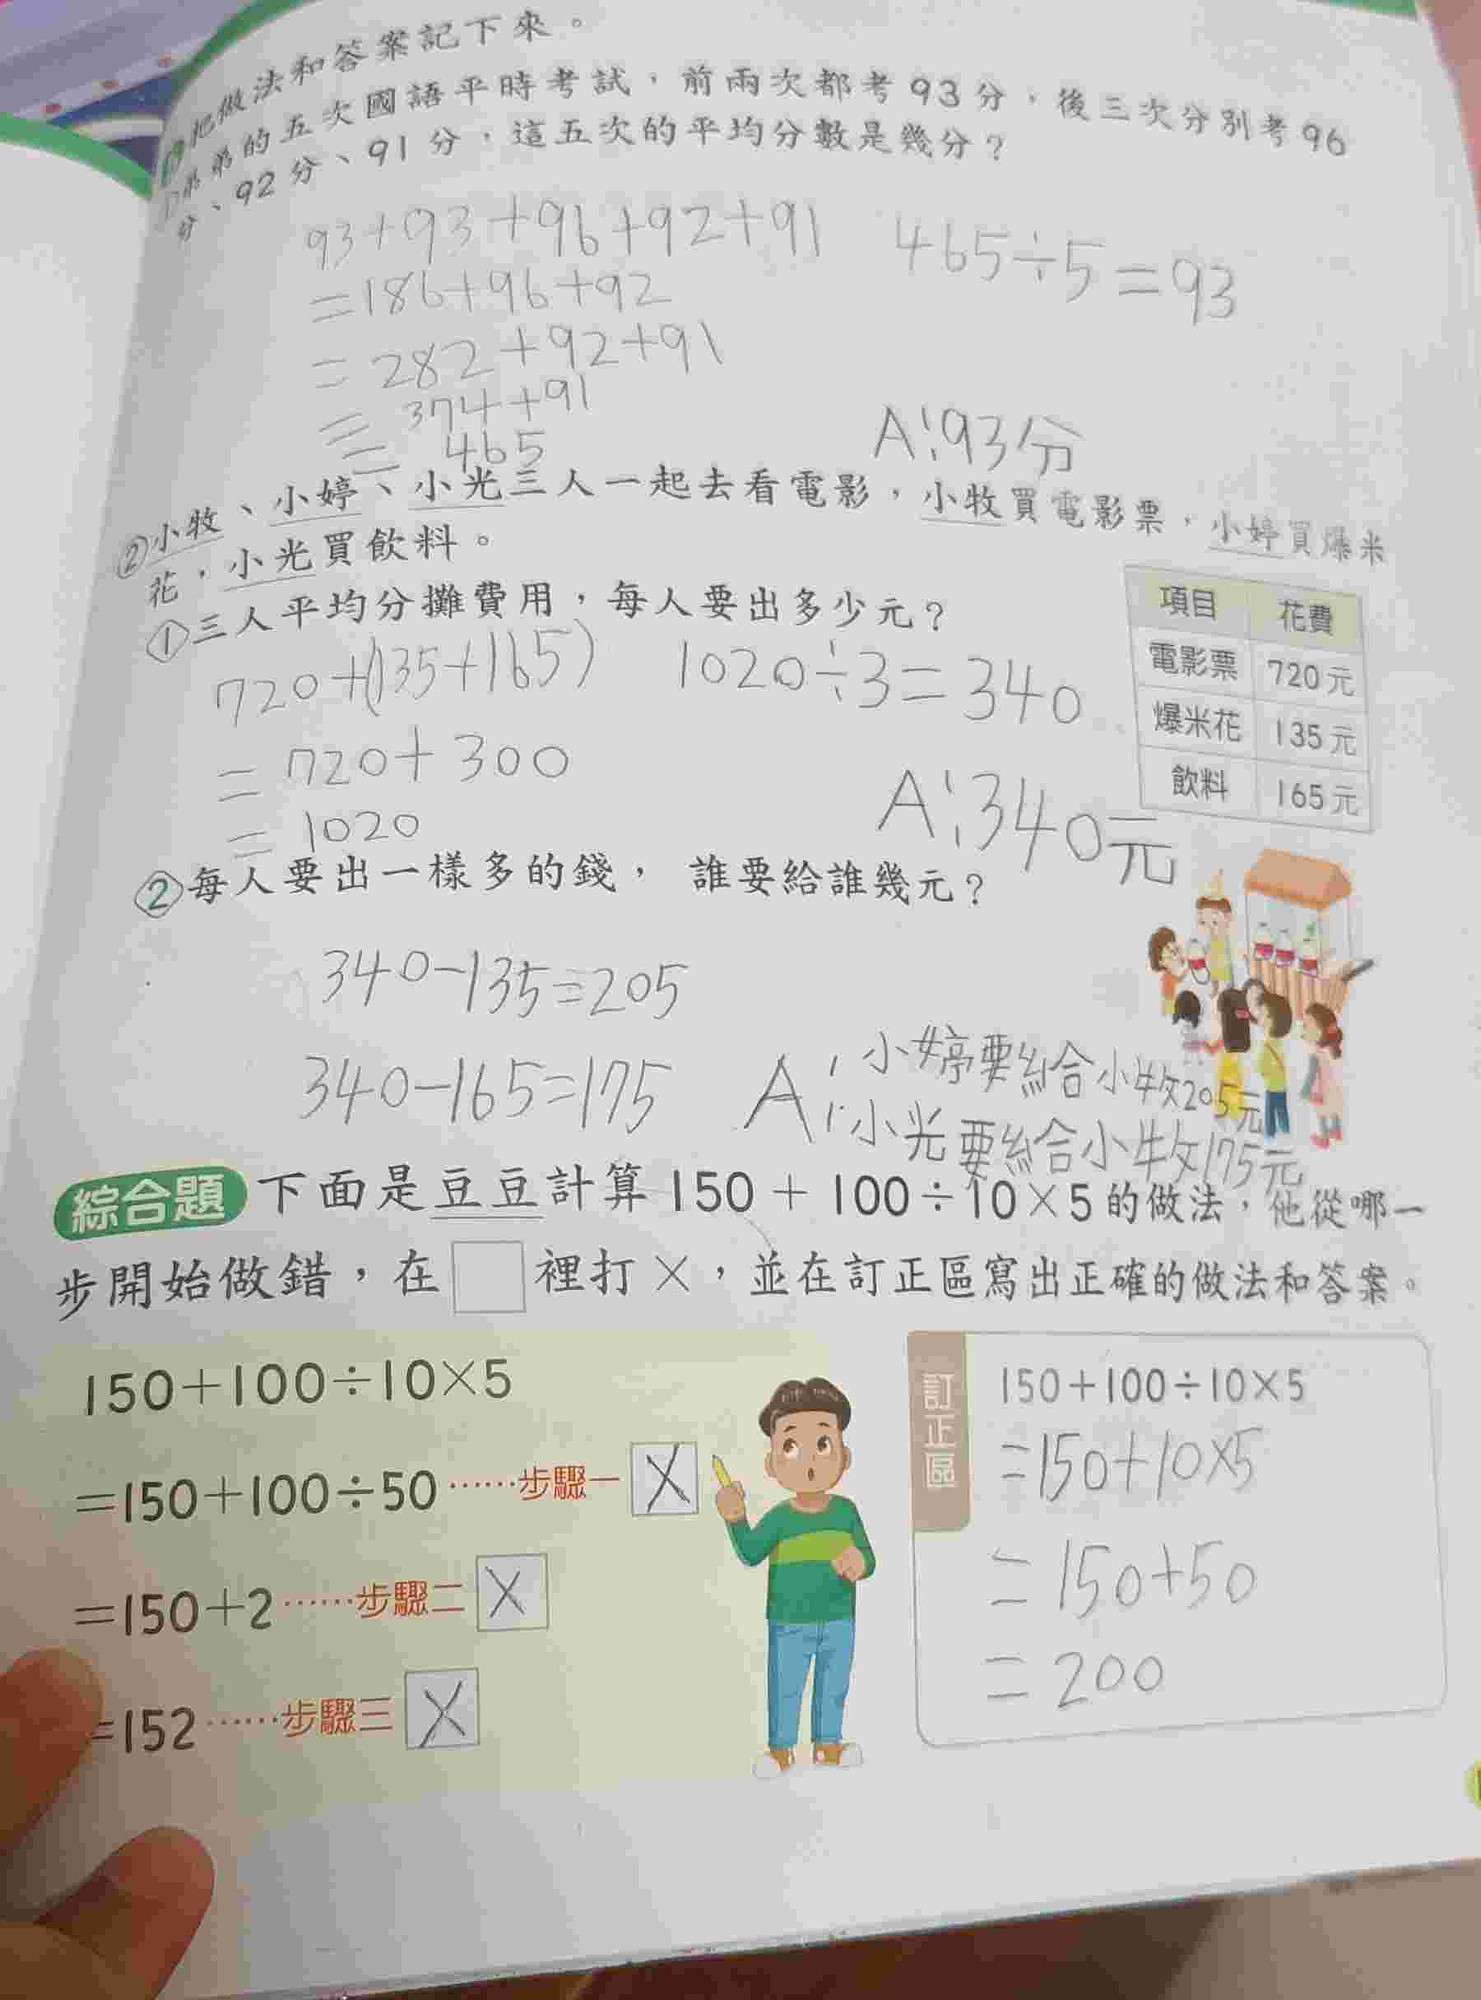 把做法和答案記下來。
弟弟的五次國語平時考試，前兩次都考93分，後三次分別考96
分、92分、91分，這五次的平均分數是幾分？
93+93+96+92+91 465÷5=93
=186+96+92
=282+92+91
=374+91
=465
A:93分
②小牧、小婷、小光三人一起去看電影，小牧買電影票，小婷買爆米
花，小光買飲料。
①三人平均分攤費用，每人要出多少元？
項目 花費
電影票 720元
爆米花 135元
飲料 165元
720+(135+165) 1020÷3=340
=720+300
=1020
A:340元
②每人要出一樣多的錢，誰要給誰幾元？
340-135=205
340-165=175
A:小婷要給小牧205元
小光要給小牧175元
綜合題 下面是豆豆計算150+100÷10×5的做法，他從哪一
步開始做錯，在□裡打×，並在訂正區寫出正確的做法和答案。
150+100÷10×5
=150+100÷50……步驟一 X
=150+2……步驟二 X
=152……步驟三 X
訂正區
150+100÷10×5
=150+10×5
=150+50
=200